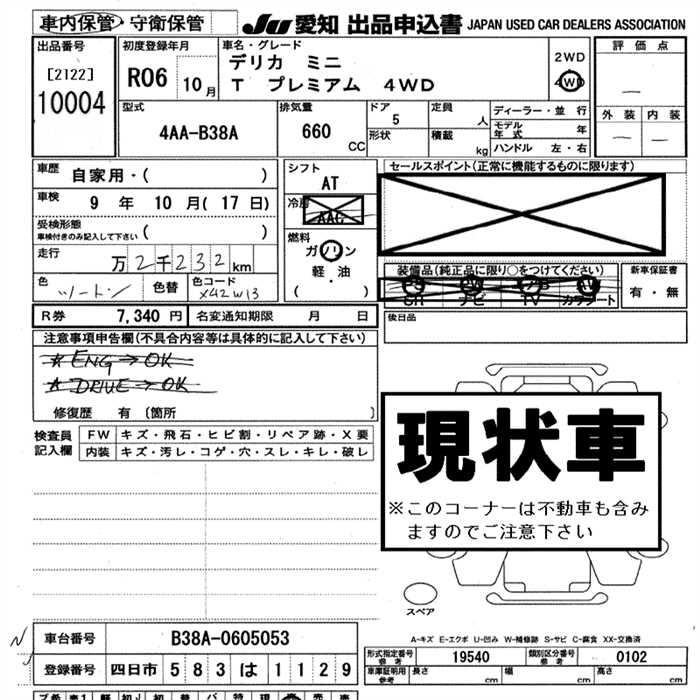 車内保管・守衛保管
JU 愛知 出品申込書 JAPAN USED CAR DEALERS ASSOCIATION
出品番号
[2122]
10004
初度登録年月
R06 10月
車名・グレード
デリカ ミニ
T プレミアム 4WD
2WD
4WD
評価点
—
外装 内装
— —
型式
4AA-B38A
排気量
660
CC
ドア
5
形状
定員
人
積載
kg
ディーラー・並行
モデル年式 年
ハンドル 左・右
車歴
自家用・( )
車検
9 年 10 月( 17 日)
受検形態
車検付きのみ記入して下さい ( )
走行
万2千232km
色
ツートン
色替
色コード
X42W13
シフト
AT
冷房
AAC
燃料
ガソリン
軽・油
( )
セールスポイント(正常に機能するものに限ります)
装備品(純正品に限り○をつけてください)
SR PS PW AB
CH ナビ TV カラフート
新車保証書
有・無
後日品
R券 7,340 円
名変通知期限 月 日
注意事項申告欄(不具合内容等は具体的に記入して下さい)
★ENG→OK
★DRIVE→OK
修復歴 有 〔箇所 〕
検査員記入欄
FW キズ・飛石・ヒビ割・リペア跡・X要
内装 キズ・汚レ・コゲ・穴・スレ・キレ・破レ
現状車
※このコーナーは不動車も含み
ますのでご注意下さい
スペア
A-キズ E-エクボ U-凹み W-補修跡 S-サビ C-腐食 XX-交換済
車台番号 B38A-0605053
登録番号 四日市 583 は 1129
形式指定番号
参考
19540
類別区分番号
参考
0102
車庫証明用
参考
長さ cm 幅 cm 高さ cm